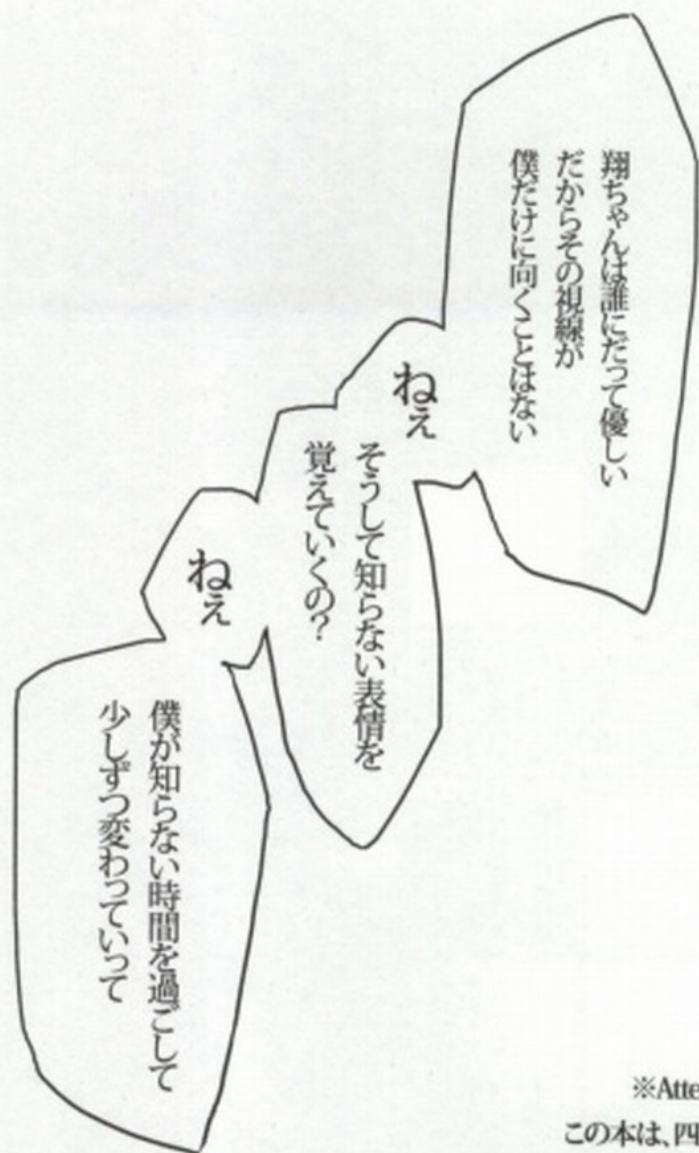 翔ちゃんは誰にだって優しい
だからその視線が
僕だけに向くことはない
ねぇ
そうして知らない表情を
覚えていくの?
ねぇ
僕が知らない時間を過ごして
少しずつ変わっていって
※Atte
この本は、四